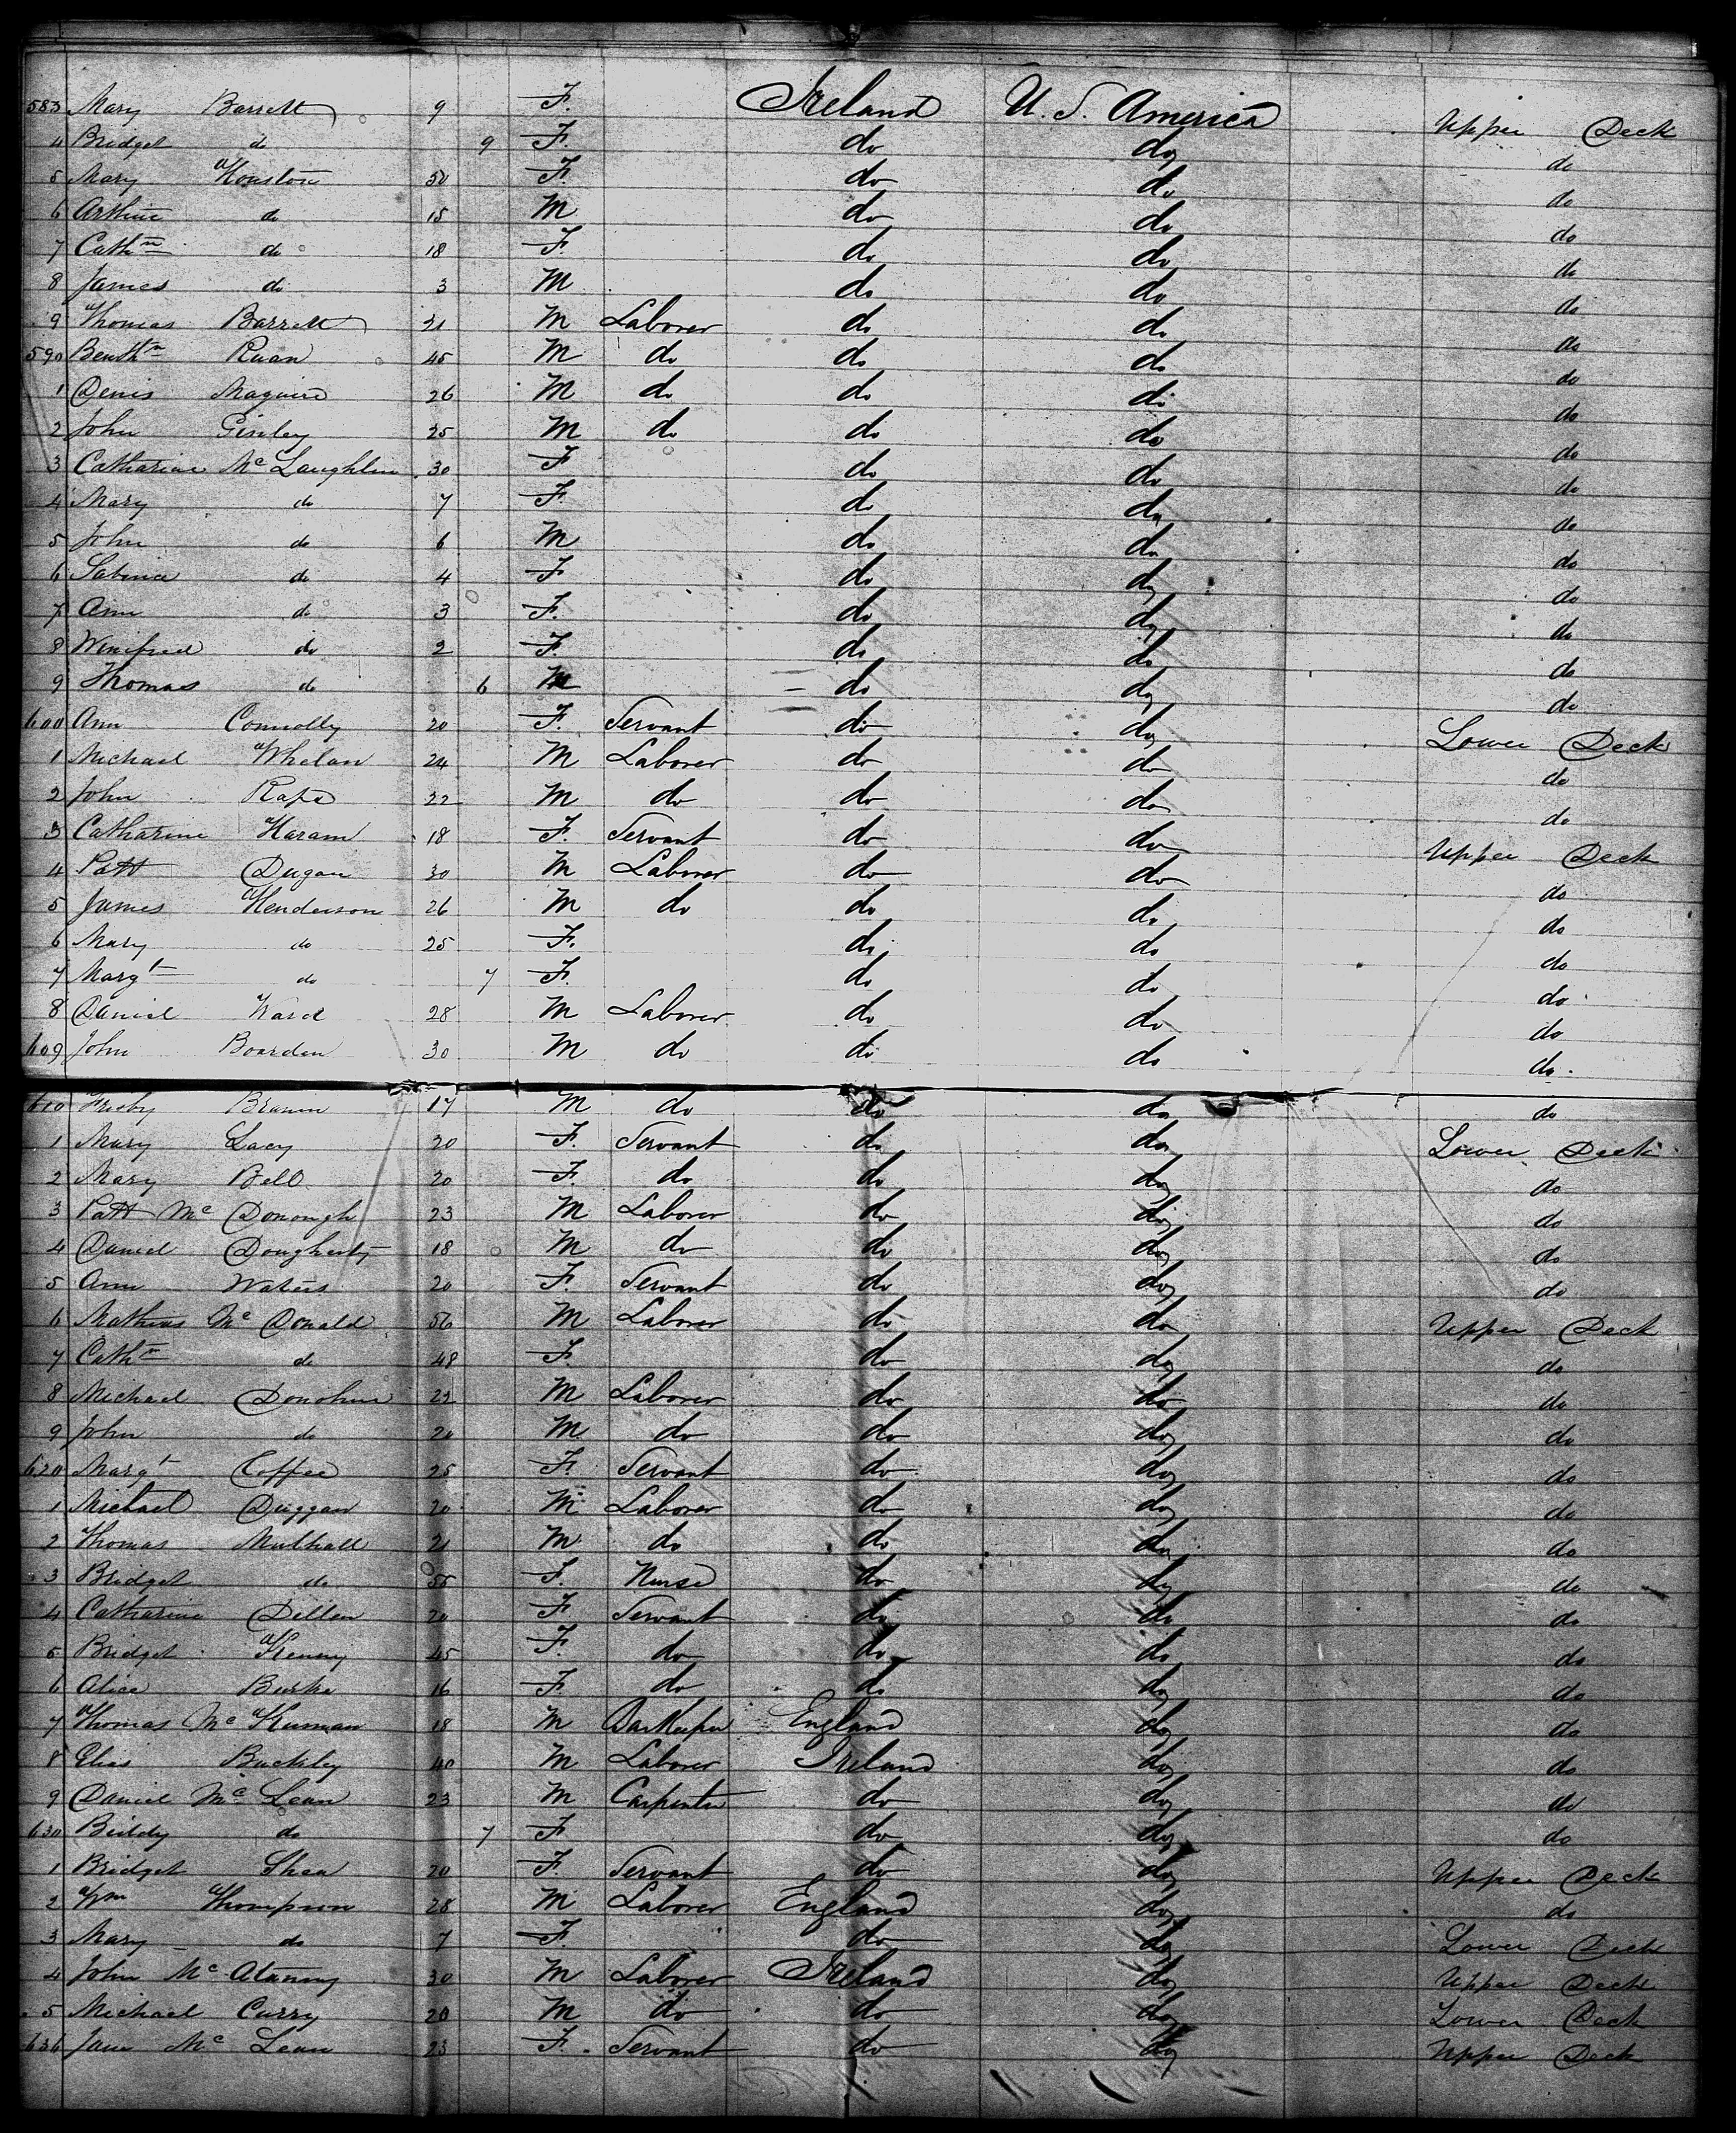 583 Mary Barrett 9 F. Ireland U. S. America Upper Deck
4 Bridget do 9 F. do do do
5 Mary Houston 50 F. do do do
6 Arthur do 15 M do do do
7 Cathn do 18 F. do do do
8 James do 3 M do do do
9 Thomas Barrett 21 M Laborer do do do
590 Ruan 45 M do do do do
1 Denis Maguire 26 M do do do do
2 John Ginley 25 M do do do do
3 Catharine Mc Laughlin 30 F do do do
4 Mary do 7 F. do do do
5 John do 6 M do do do
6 Sabina do 4 F do do do
7 Ann do 3 F. do do do
8 Winifred do 2 F. do do do
9 Thomas do 6 M do do do
600 Ann Connolly 20 F. Servant do do Lower Deck
1 Michael Whelan 24 M Laborer do do do
2 John 22 M do do do do
3 Catharine Haram 18 F. Servant do do Upper Deck
4 Patt Dugan 30 M Laborer do do do
5 James Henderson 26 M do do do do
6 Mary do 25 F. do do do
7 Margt do 7 F. do do do
8 Daniel Ward 28 M Laborer do do do
609 John Boarden 30 M do do do do
610 17 M do do do do
1 Mary Lacy 20 F. Servant do do Lower Deck
2 Mary Bell 20 F. do do do do
3 Patt Mc Donough 23 M Laborer do do do
4 Daniel Dougherty 18 M do do do do
5 Ann Waters 20 F. Servant do do do
6 Mathias Mc Donald 56 M Laborer do do Upper Deck
7 Cathn do 48 F. do do do
8 Michael Donohue 22 M Laborer do do do
9 John do 20 M do do do do
620 Margt Coffee 25 F. Servant do do do
1 Michael Duggan 20 M Laborer do do do
2 Thomas Mulhall 21 M do do do do
3 Bridget do 55 F. Nurse do do do
4 Catharine Dillen 20 F. Servant do do do
5 Bridget Kenny 45 F. do do do do
6 Alice Burke 16 F. do do do do
7 Thomas Mc Kurnan 18 M Barkeeper England do do
8 Elias Buckley 40 M Laborer Ireland do do
9 Daniel Mc Lean 23 M Carpenter do do do
630 Biddy do 7 F do do do
1 Bridget Shea 20 F. Servant do do Upper Deck
2 Wm Thompson 28 M Laborer England do do
3 Mary do 7 F. do do Lower Deck
4 John Mc 30 M Laborer Ireland do Upper Deck
5 Michael Curry 20 M do do do Lower Deck
636 Jane Mc Lean 23 F. Servant do do Upper Deck